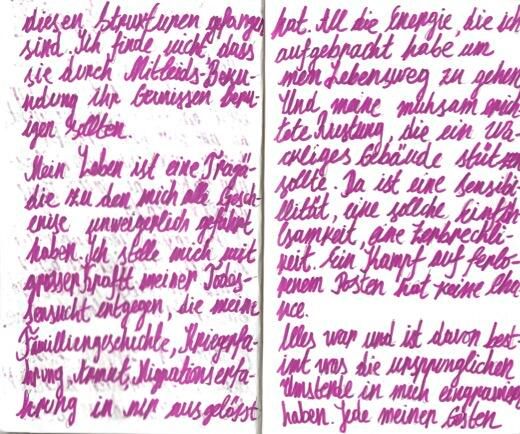 diesen Strukturen gefangen
sind. Ich finde nicht, dass
sie durch Mitleids-Bekun-
ndung ihr Gewissen beru-
igen sollten.
Mein Leben ist eine Tragö-
die zu den mich alle Gesch-
enise unweigerlich geführt
haben. Ich stelle mich mit
grosser Krafft meiner Todes-
sensucht entgegen, die meine
Familiengeschichte, Kriegerfa-
hrung, Armut, Migrationserfa-
hrung in mir ausgelösst
hat. All die Energie, die ich
aufgebracht habe um
mein Lebensweg zu gehen
Und meine mühsam errich
tete Rüstung, die ein Wa-
ckliges Gebäude stützen
sollte. Da ist eine sensibi-
llität, eine solche Einfüh-
lsamkeit, eine Zerbrechli-
keit. Ein Kampf auf ferlo-
renem Posten hat keine Cha-
nce.
Alles war und ist davon best-
imt was die ursprünglichen
Umstende in mich eingraviert
haben. Jede meiner Gesten